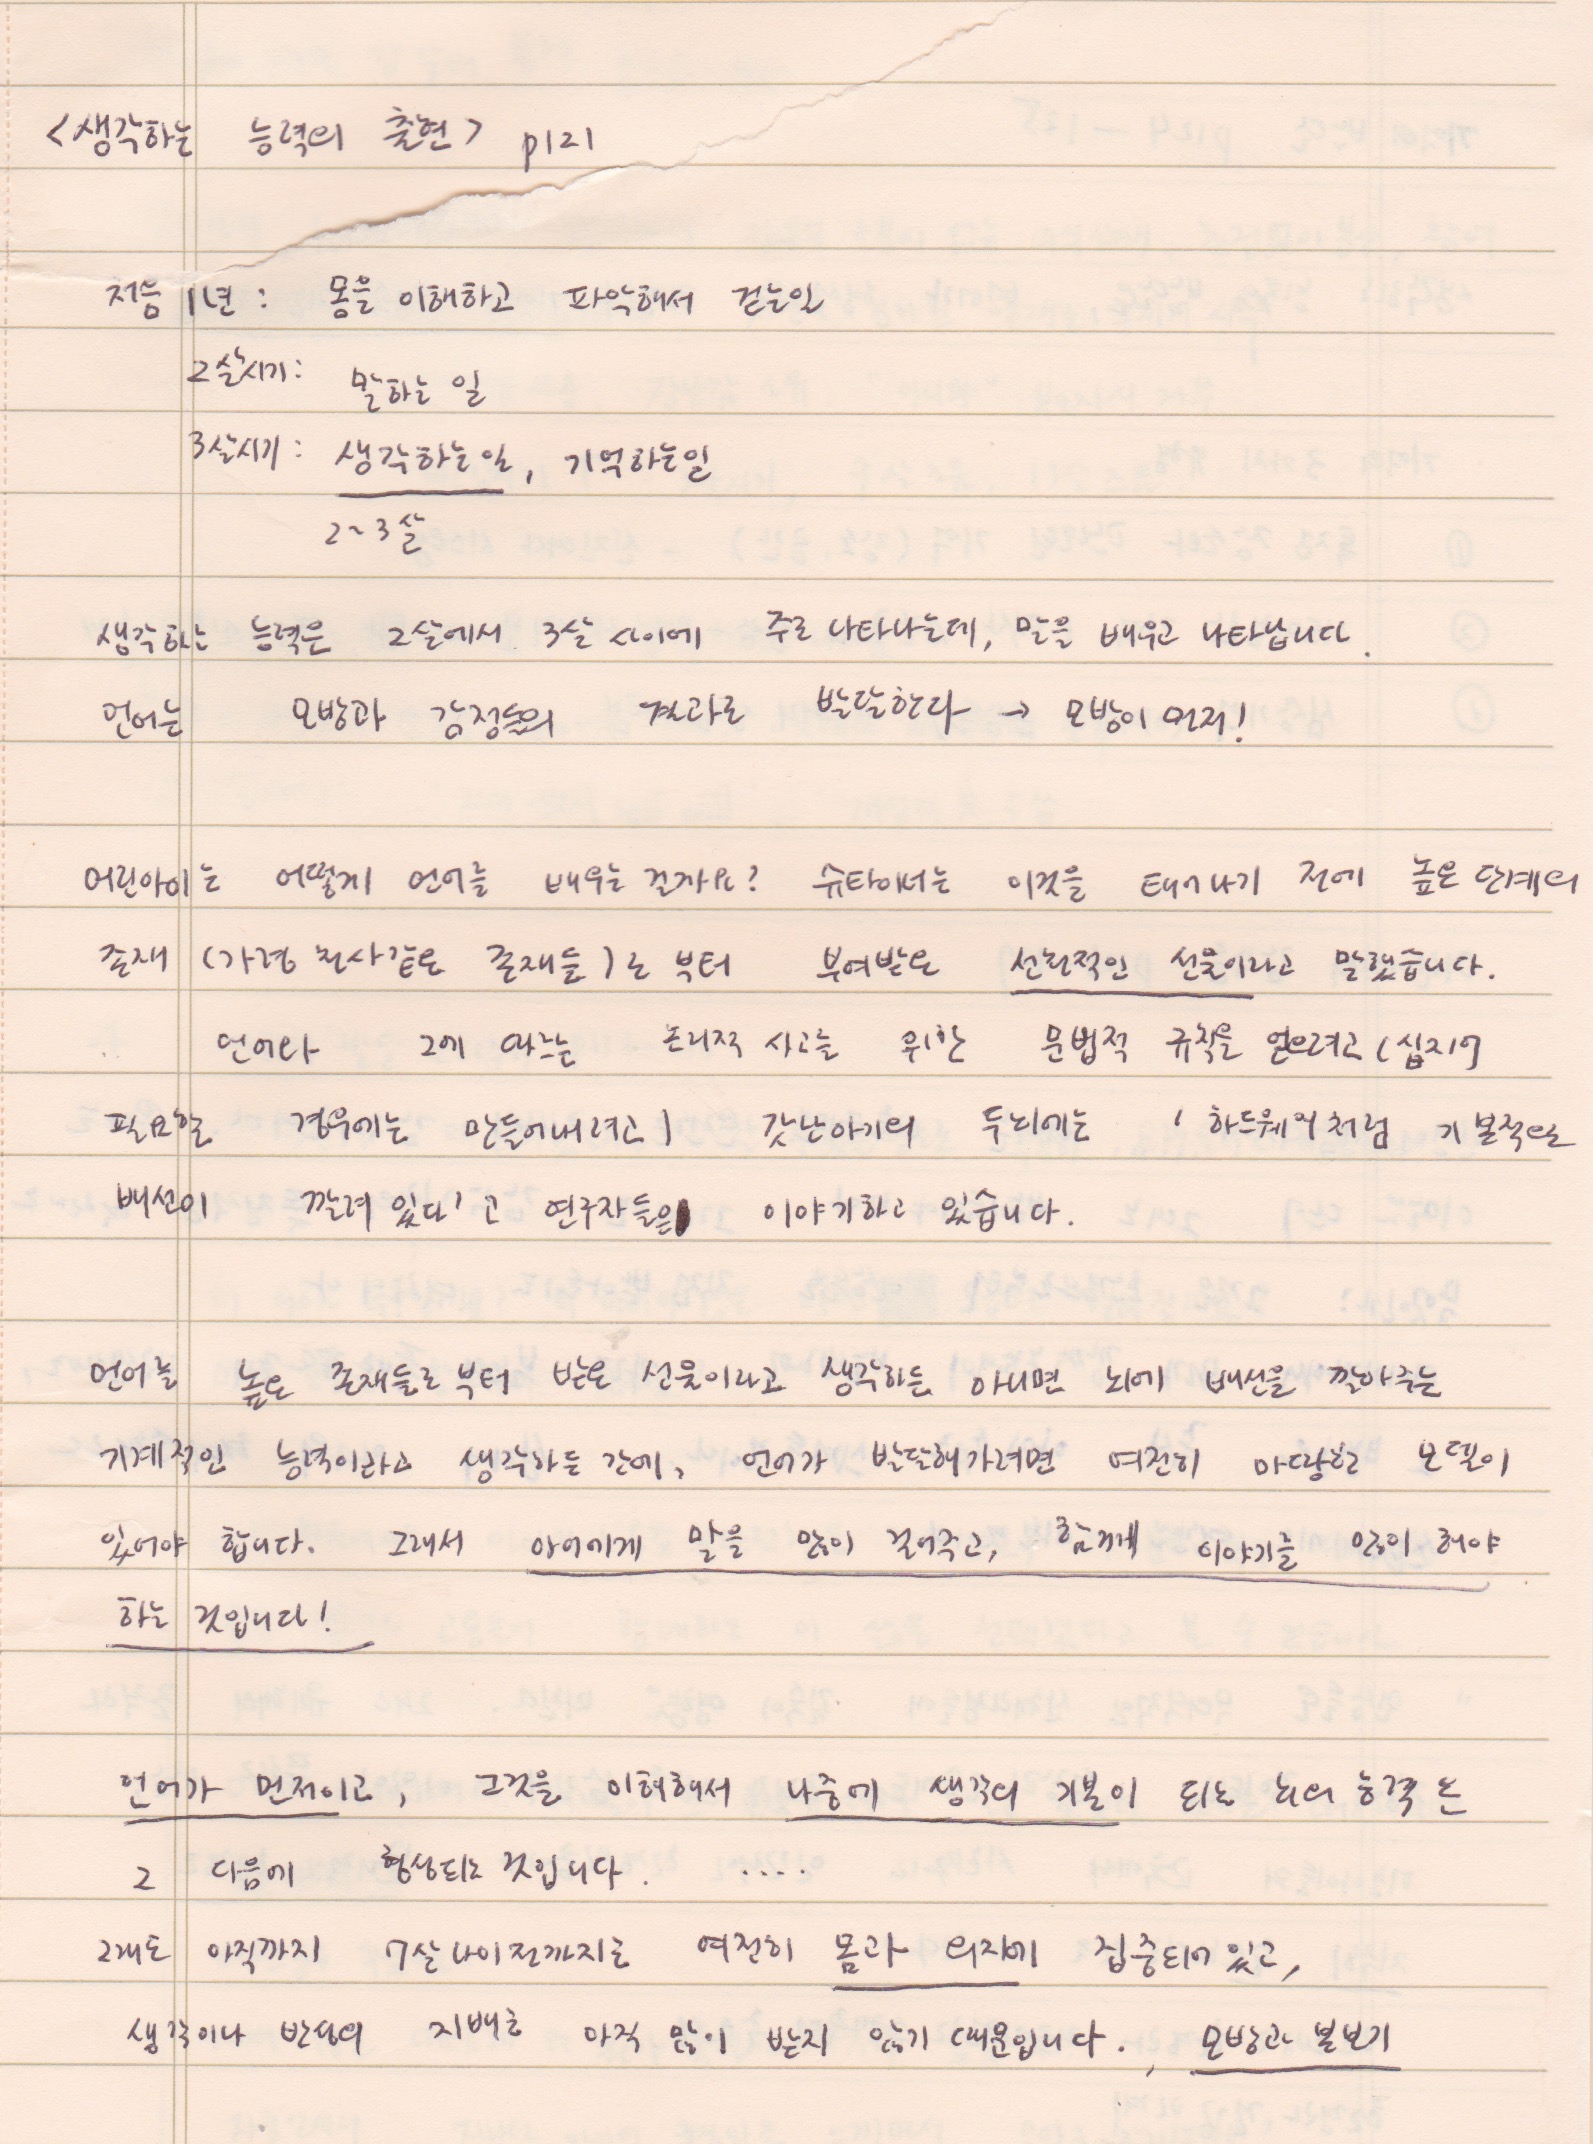 <생각하는 능력의 출현> p121
처음 1년 : 몸을 이해하고 파악해서 걷는일
2살시기: 말하는 일
3살시기: 생각하는일, 기억하는일
2~3살
생각하는 능력은 2살에서 3살 사이에 주로 나타나는데, 말을 배우고 나타납니다.
언어는 모방과 감정들의 결과로 발달한다 → 모방이 먼저!
어린아이는 어떻게 언어를 배우는 걸까요? 슈타이너는 이것을 태어나기 전에 높은 단계의
존재 (가령 천사같은 존재들)로 부터 부여받은 선천적인 선물이라고 말했습니다.
언어와 그에 따르는 논리적 사고를 위한 문법적 규칙을 얻으려고 (심지어
필요할 경우에는 만들어내려고) 갓난아기의 두뇌에는 '하드웨어처럼 기본적인
배선이 깔려 있다'고 연구자들은 이야기하고 있습니다.
언어를 높은 존재들로부터 받은 선물이라고 생각하든 아니면 뇌에 배선을 깔아주는
기계적인 능력이라고 생각하든 간에, 언어가 발달해가려면 여전히 마땅한 모델이
있어야 합니다. 그래서 아이에게 말을 많이 걸어주고, 함께 이야기를 많이 해야
하는 것입니다!
언어가 먼저이고, 그것을 이해해서 나중에 생각의 기본이 되는 뇌의 능력은
그 다음에 형성되는 것입니다. ....
그래도 아직까지 7살 나이전까지는 여전히 몸과 의지에 집중되어 있고,
생각이나 반성의 지배를 아직 많이 받지 않기 때문입니다. , 모방과 본보기